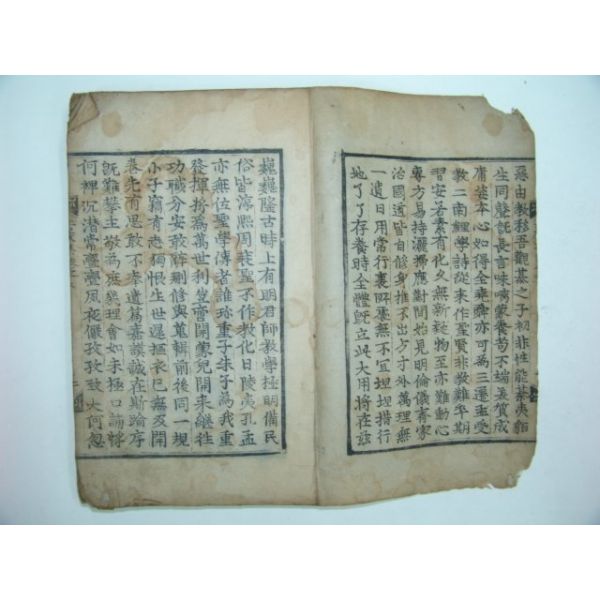 慕由教移吾觀綦之子初非性能綦夷貊
生同聲記長言咮嘴蒙養苟不端美質成
庸案本心如得全堯舜亦可為三遷亟受
教二南鯉學詩從來作聖賢非教難早期
習安若素有化久無新疑物至亦難動心
專方易持灑掃應對間始見明倫儀齊家
治國道皆自修身推不出方寸外萬理無
一遺日用常行裏既無不宜坦坦措行
地了了存養時全體既立此大用將在玆
巍巍隆古時上有明君師教學極明備民
俗皆淳熙周衰聖不作教化日陵夷孔孟
亦無位聖學傳者誰珍重子朱子為我重
發揮拎為萬世利豈啻開蒙兒開來繼往
功職分安敢辭刪修與蒐輯前後同一規
小子竊有志獨恨生世遲摳衣已無及開
卷先有思敢不奉遺篇嘉謨誠在斯踰序
既難學主敬為應幾理會如未極口誦將
何裨沉潜常亹亹夙夜儼孜孜致大何忽